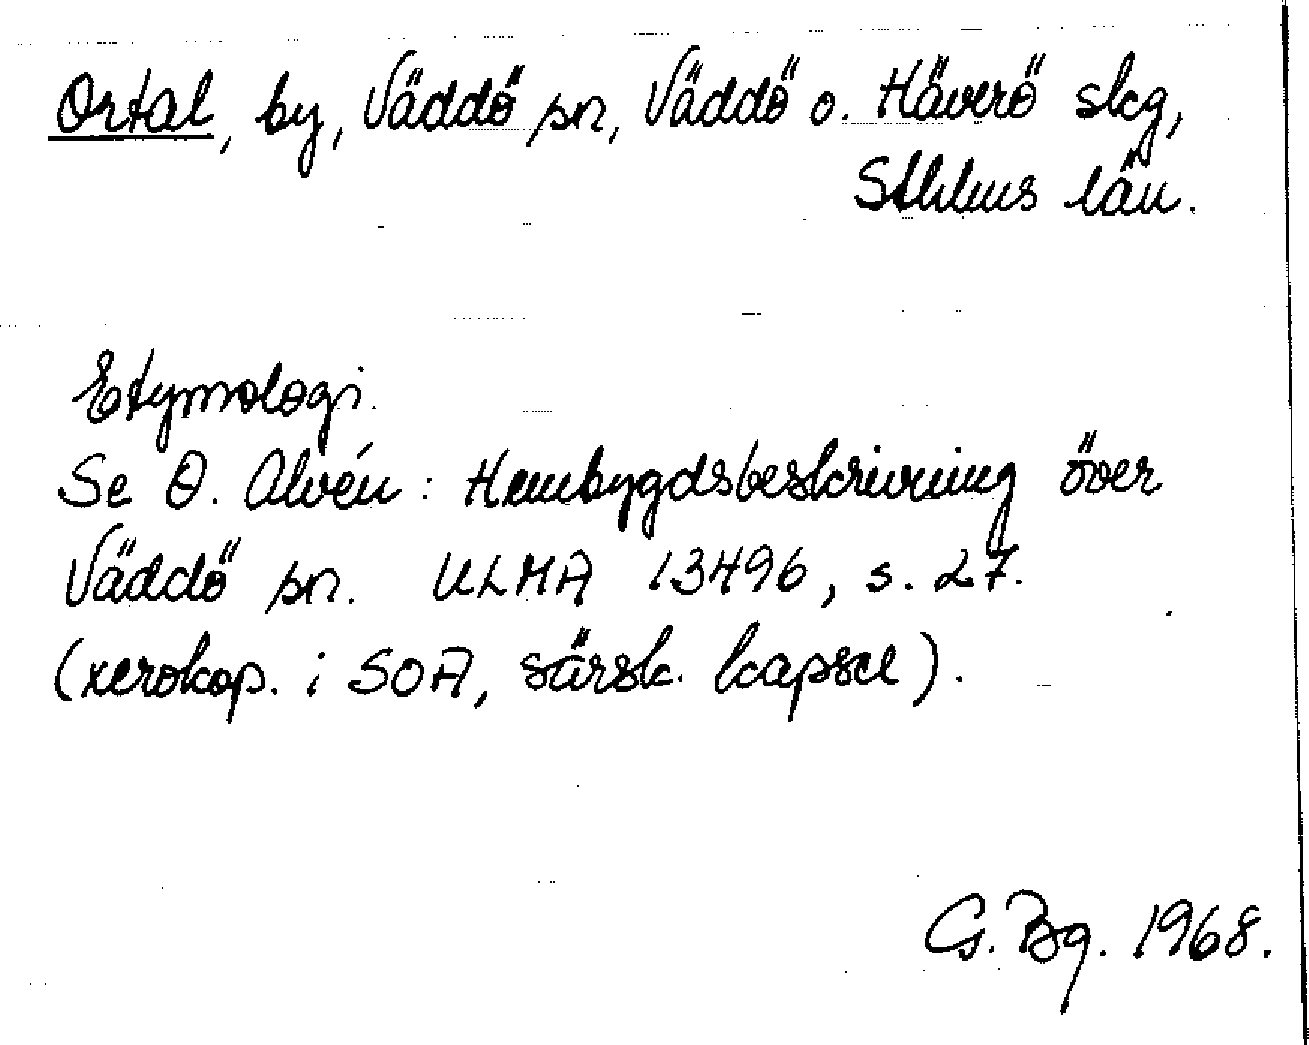 Ortal, by, Väddö sn, Väddö o. Häverö skg,
Sthlms län.
Etymologi.
Se O. Alvén: Hembygdsbeskrivning över
Väddö sn. ULMA 13496, s. 27.
(xerokop. i SOA, särsk. kapsel).
G. Bg. 1968.